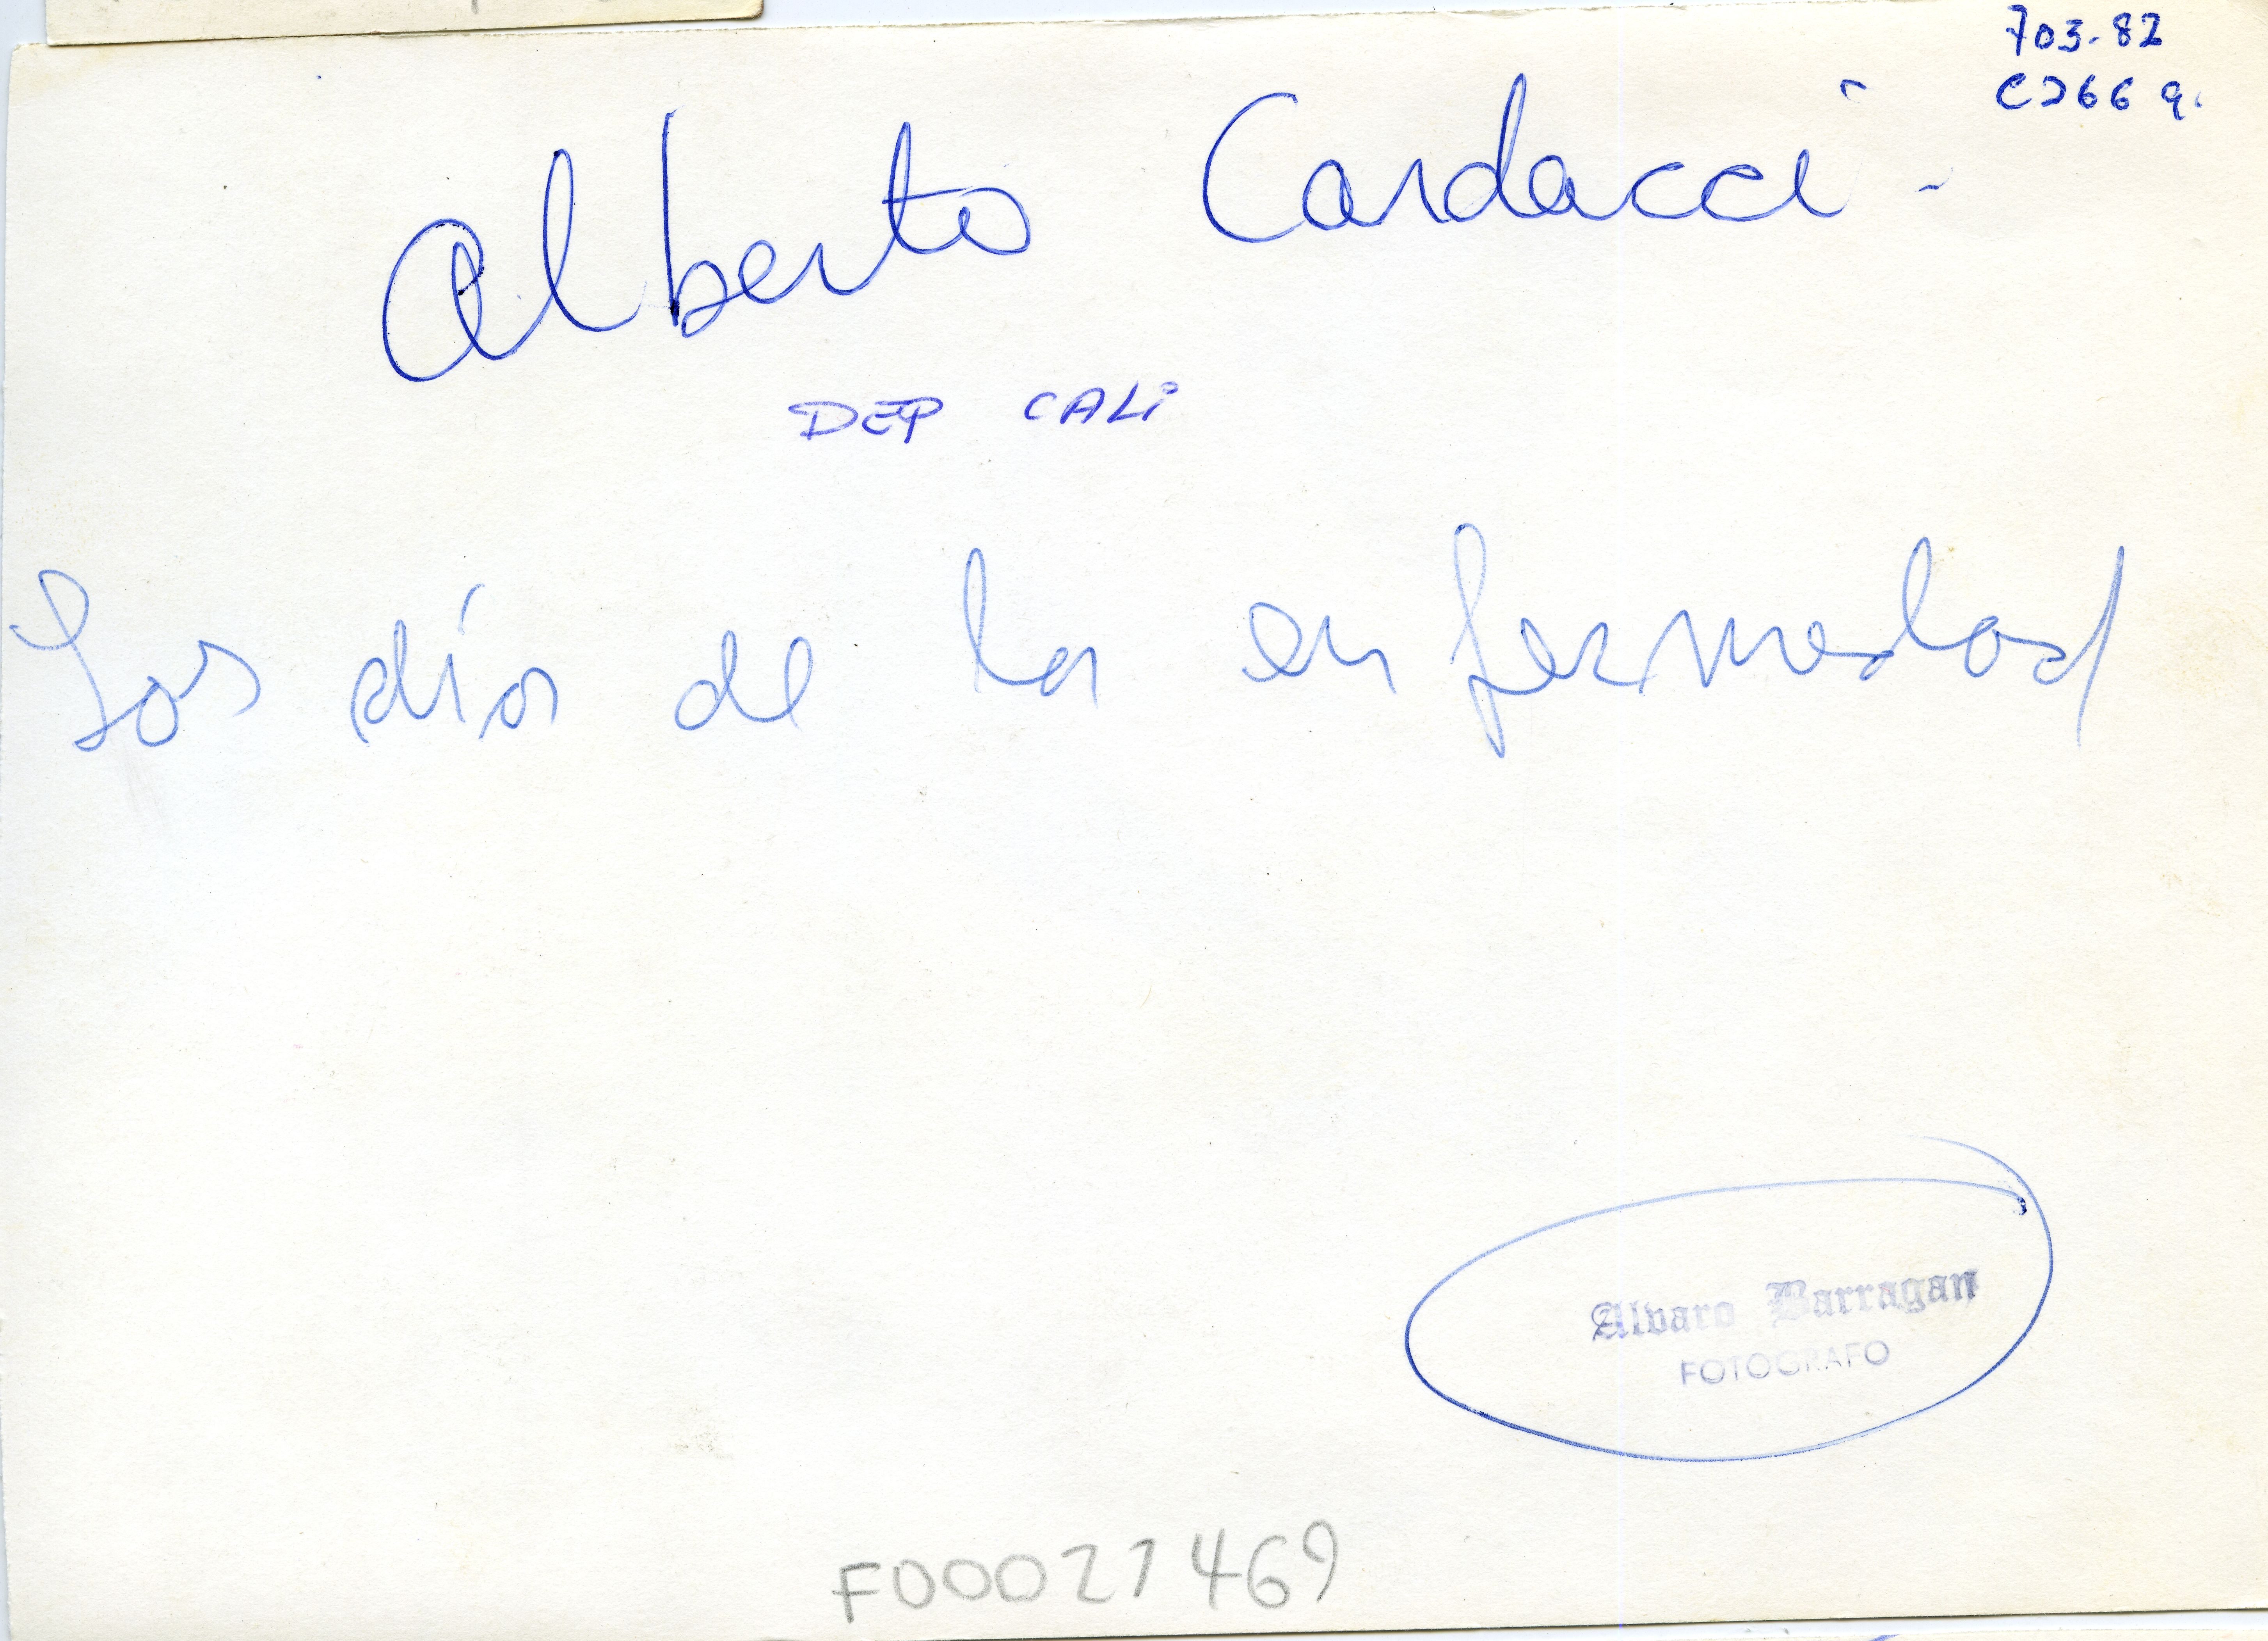 703-82
C266 q.
Alberto Cardacci -
DEP CALi
Los día de la enfermedad
Alvaro Barragan
FOTOGRAFO
F00021469